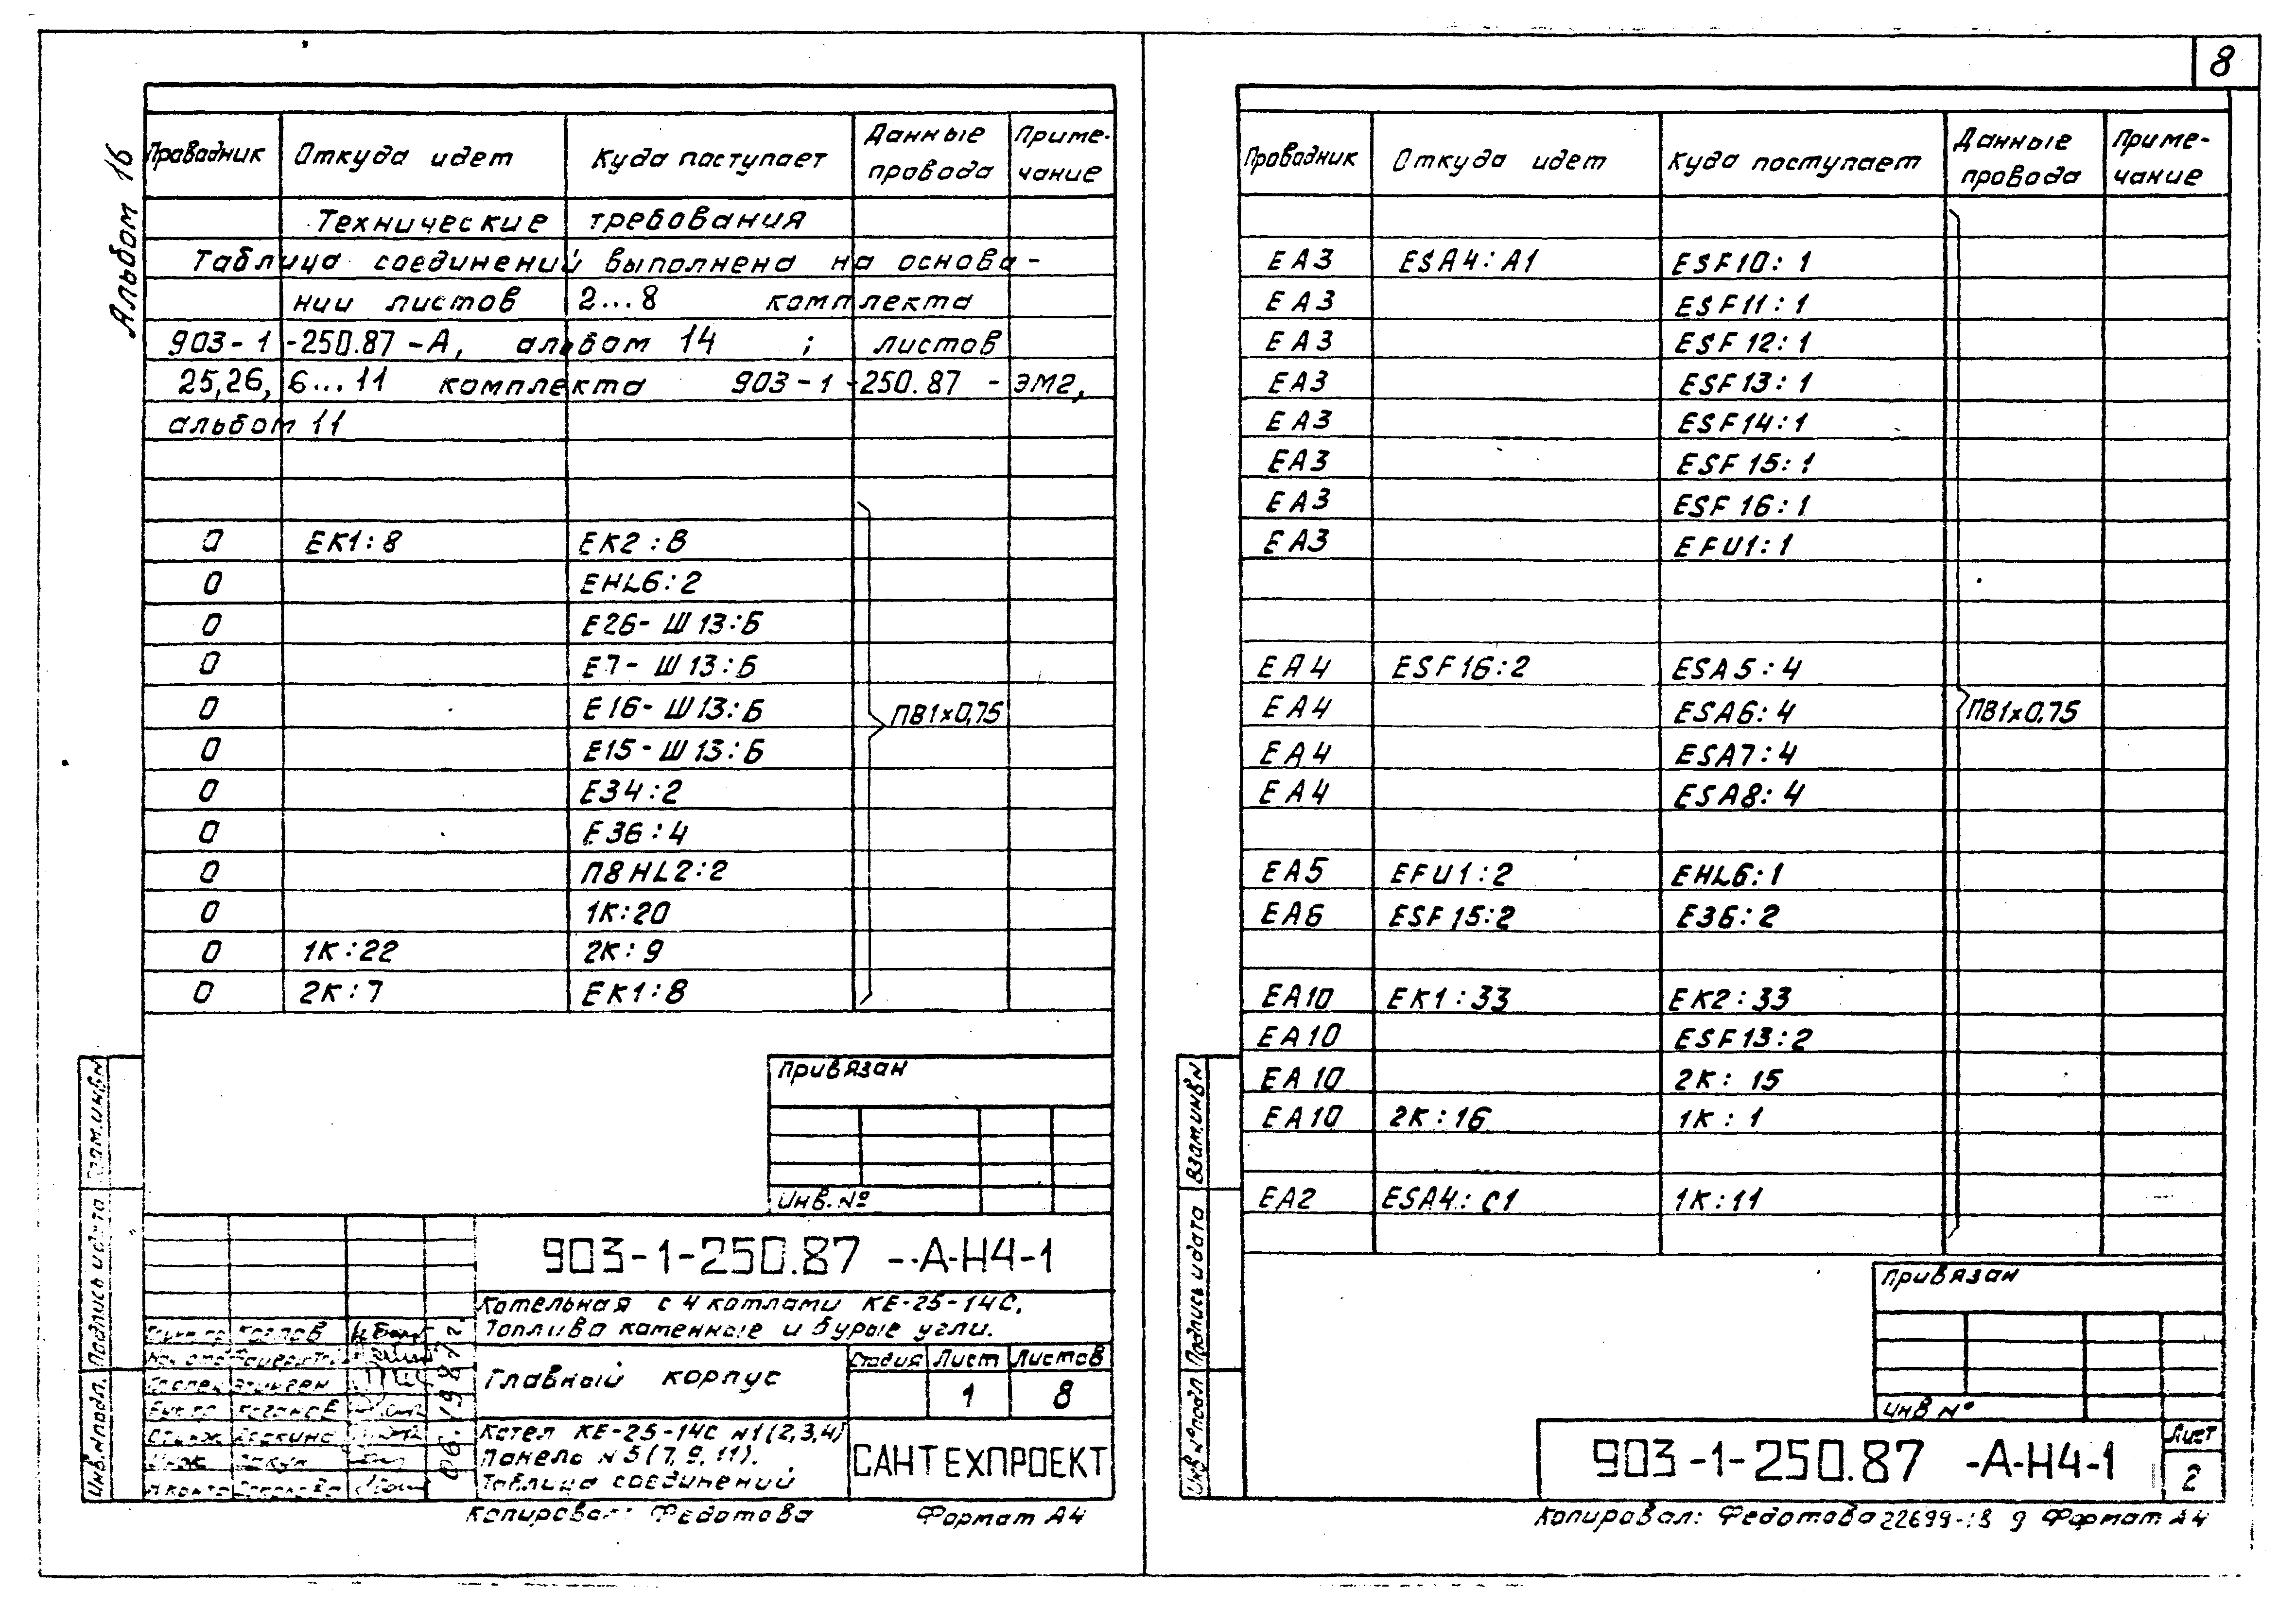 8
Альбом 16
Проводник Откуда идет Куда поступает Данные провода Приме-чание
Технические требования
Таблица соединений выполнена на основа-
нии листов 2...8 комплекта
903-1-250.87-А, альбом 14 ; листов
25,26, 6...11 комплекта 903-1-250.87-ЭМ2,
альбом 11
0 ЕК1:8 ЕК2:8
0 EHL6:2
0 Е26-Ш13:Б
0 Е7-Ш13:Б
0 Е16-Ш13:Б ПВ1х0,75
0 Е15-Ш13:Б
0 Е34:2
0 Е36:4
0 П8HL2:2
0 1К:20
0 1К:22 2К:9
0 2К:7 ЕК1:8
Привязан
Инв.№
903-1-250.87 -А-Н4-1
Котельная с 4 котлами КЕ-25-14С.
Топлива каменные и бурые угли.
Главный корпус
Стадия Лист Листов
1 8
Котел КЕ-25-14С №1(2,3,4)
Панель №5(7,9,11).
Таблица соединений
САНТЕХПРОЕКТ
Козлов
06.1987г.
Инв.№подл. Подпись и дата Взам.инв№
Копировал: Федотова Формат А4
Проводник Откуда идет Куда поступает Данные провода Приме-чание
ЕА3 ESA4:A1 ESF10:1
ЕА3 ESF11:1
ЕА3 ESF12:1
ЕА3 ESF13:1
ЕА3 ESF14:1
ЕА3 ESF15:1
ЕА3 ESF16:1
ЕА3 EFU1:1
ЕА4 ESF16:2 ESA5:4
ЕА4 ESA6:4 ПВ1х0,75
ЕА4 ESA7:4
ЕА4 ESA8:4
ЕА5 EFU1:2 EHL6:1
ЕА6 ESF15:2 Е36:2
ЕА10 ЕК1:33 ЕК2:33
ЕА10 ESF13:2
ЕА10 2К:15
ЕА10 2К:16 1К:1
ЕА2 ESA4:C1 1К:11
Привязан
Инв №
903-1-250.87 -А-Н4-1
Лист
2
Инв№подл Подпись и дата Взам.инв№
Копировал: Федотова 22699-18 9 Формат А4